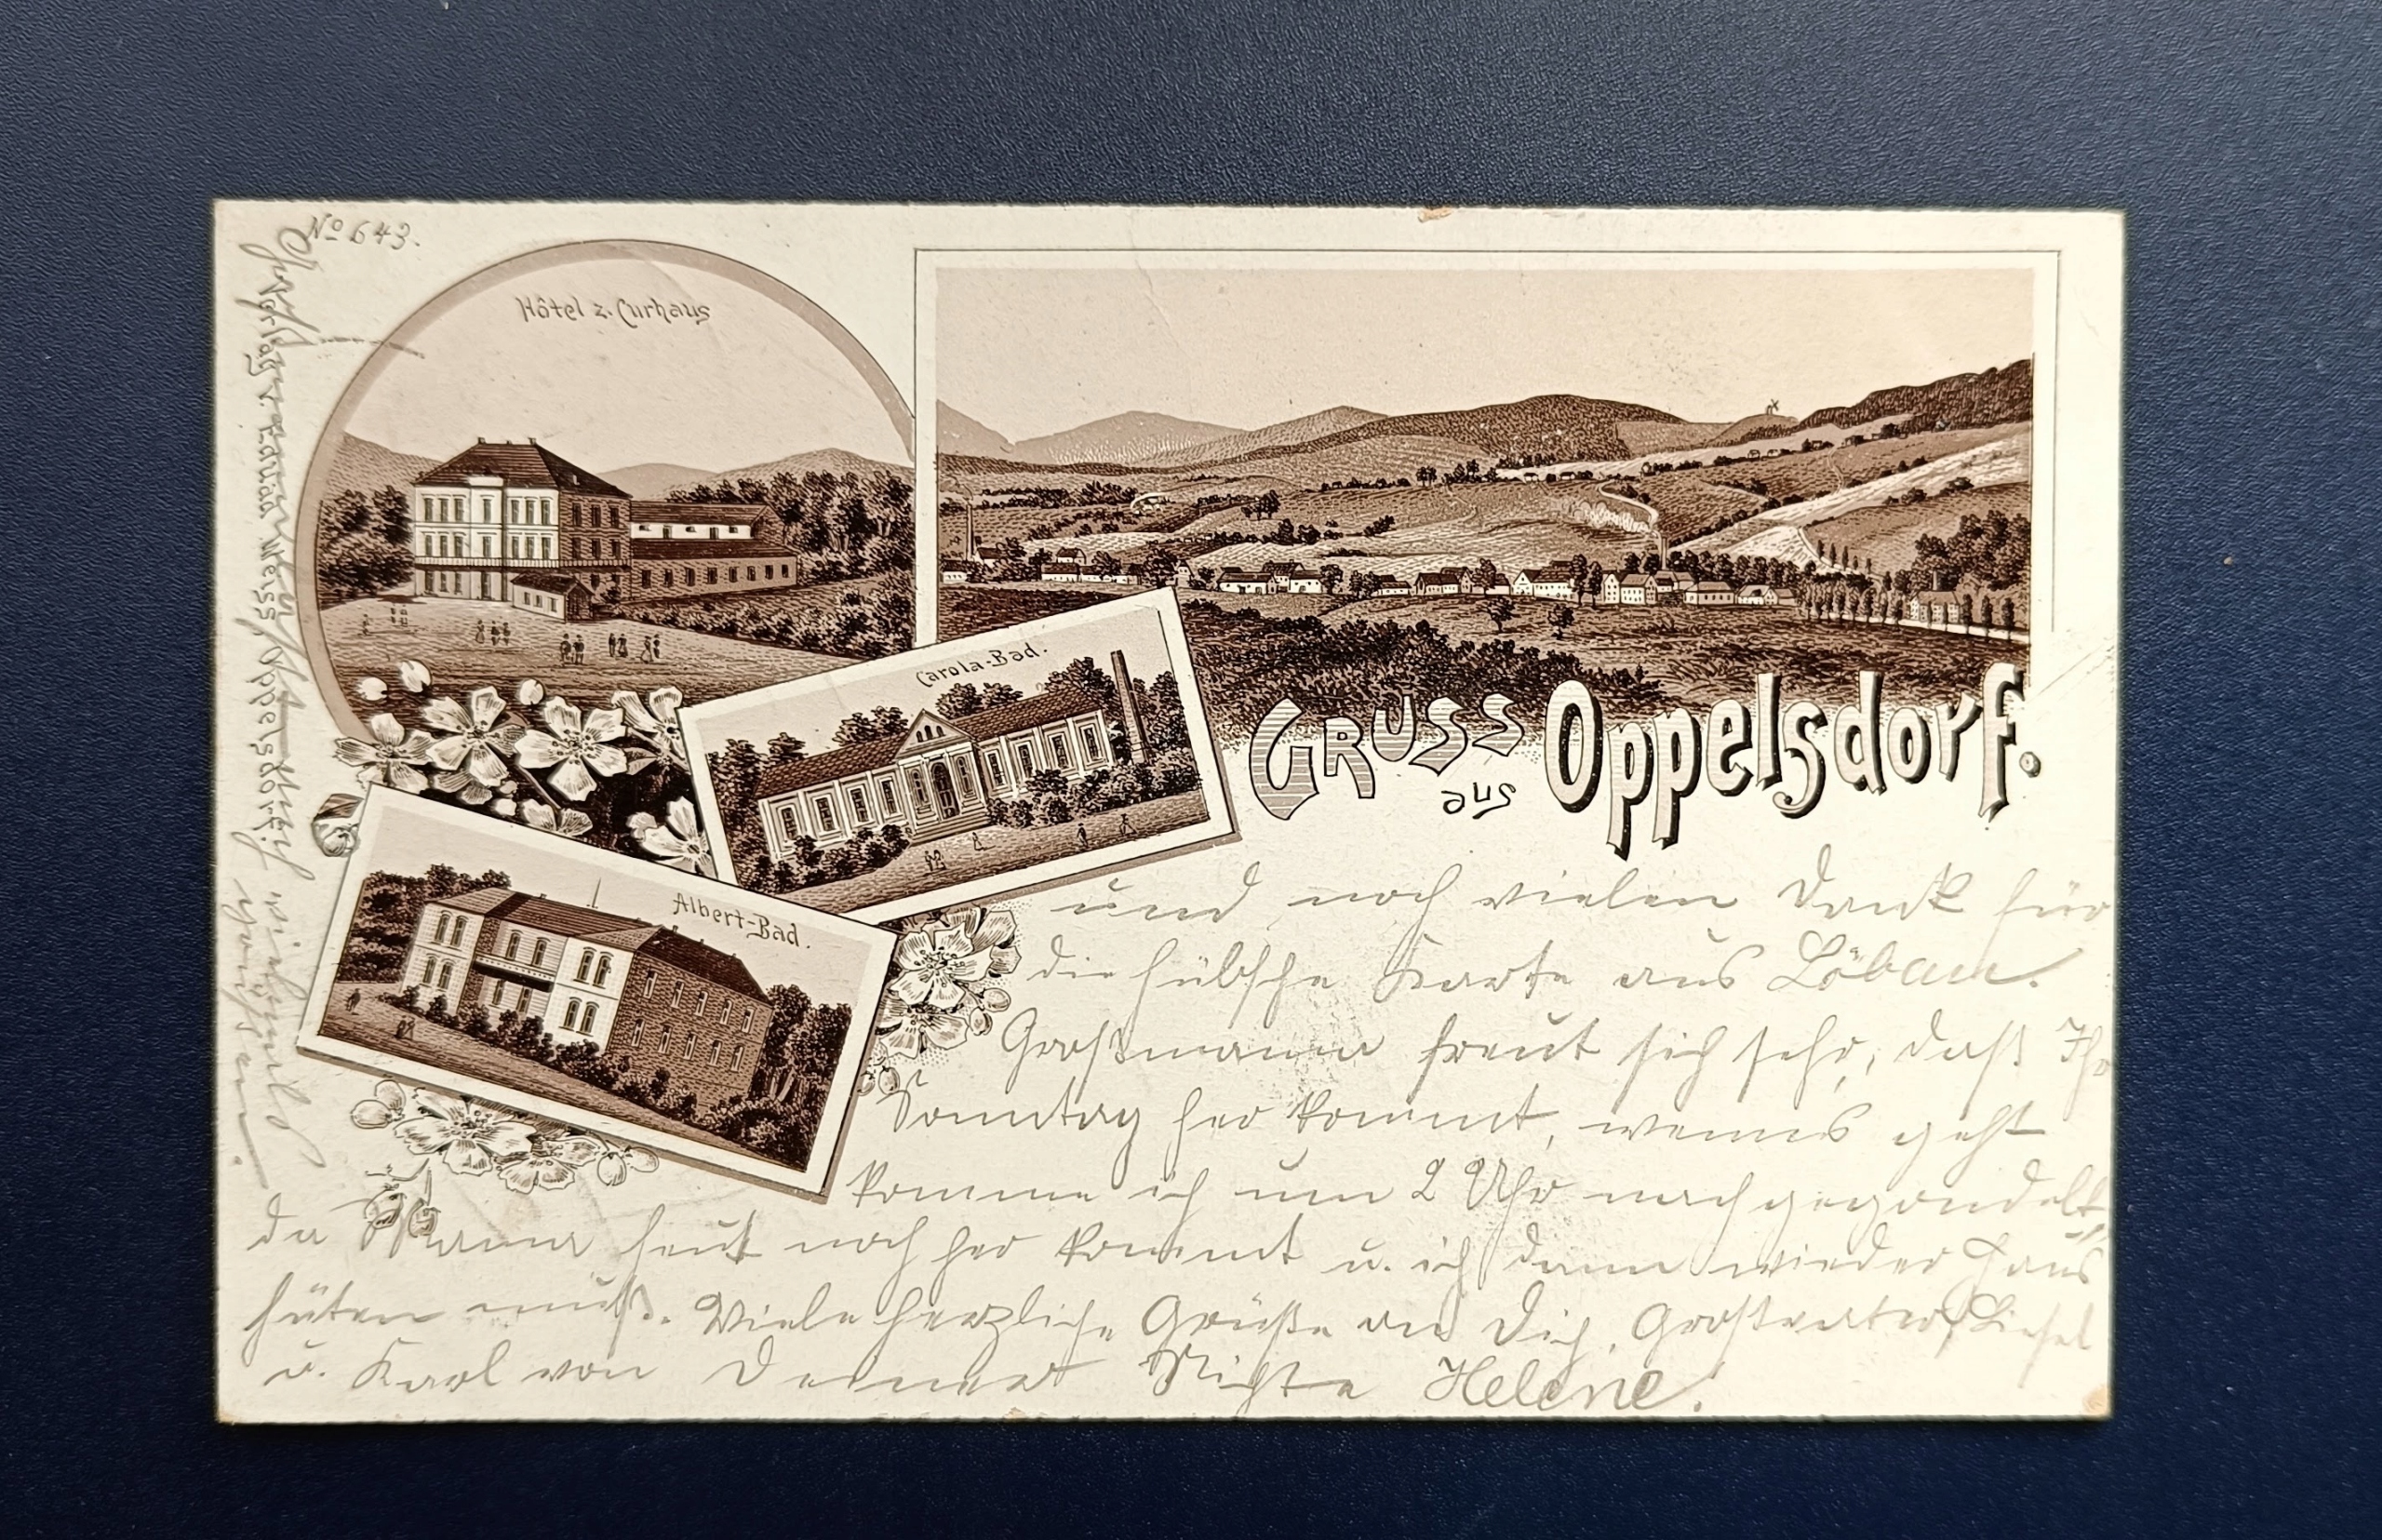 No 643.
Hôtel z. Curhaus
Carola-Bad.
Albert-Bad.
GRUSS
aus Oppelsdorf.
Verlag v. Weiss, Oppelsdorf.
und noch vielen Dank für
die hübsche Karte aus Löbau.
Großmama freut sich sehr, daß Ihr
Sonntag her kommt, wenns geht
komme ich um 2 Uhr nachgegondelt,
da Mama heut noch her kommt u. ich dann wieder Haus
hüten muß. Viele herzliche Grüße an Dich, Großvater, Liesel
u. Karl von Deiner Nichte Helene.